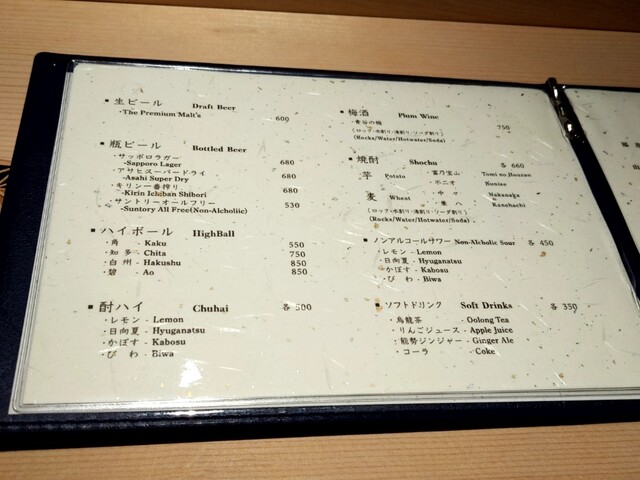 生ビール Draft Beer
・The Premium Malt's 600
瓶ビール Bottled Beer
・サッポロラガー
-Sapporo Lager 680
・アサヒスーパードライ
-Asahi Super Dry 680
・キリン一番搾り
-Kirin Ichiban Shibori 680
・サントリーオールフリー
-Suntory All Free(Non-Alcholiic) 530
ハイボール HighBall
・角 - Kaku 550
・知多 - Chita 750
・白州 - Hakushu 850
・碧 - Ao 850
酎ハイ Chuhai 各 500
・レモン - Lemon
・日向夏 - Hyuganatsu
・かぼす - Kabosu
・びわ - Biwa
梅酒 Plum Wine
・青谷の梅 750
(ロック・水割り・湯割り・ソーダ割り)
(Rocks/Water/Hotwater/Soda)
焼酎 Shochu 各 660
芋 Potato ・富乃宝山 Tomi no Houzan
・不二才 Nunise
麦 Wheat ・中々 Nakanaka
・兼八 Kanehachi
(ロック・水割り・湯割り・ソーダ割り)
(Rocks/Water/Hotwater/Soda)
ノンアルコールサワー Non-Alcholic Sour 各 450
・レモン - Lemon
・日向夏 - Hyuganatsu
・かぼす - Kabosu
・びわ - Biwa
ソフトドリンク Soft Drinks 各 350
・烏龍茶 - Oolong Tea
・りんごジュース - Apple Juice
・能勢ジンジャー - Ginger Ale
・コーラ - Coke